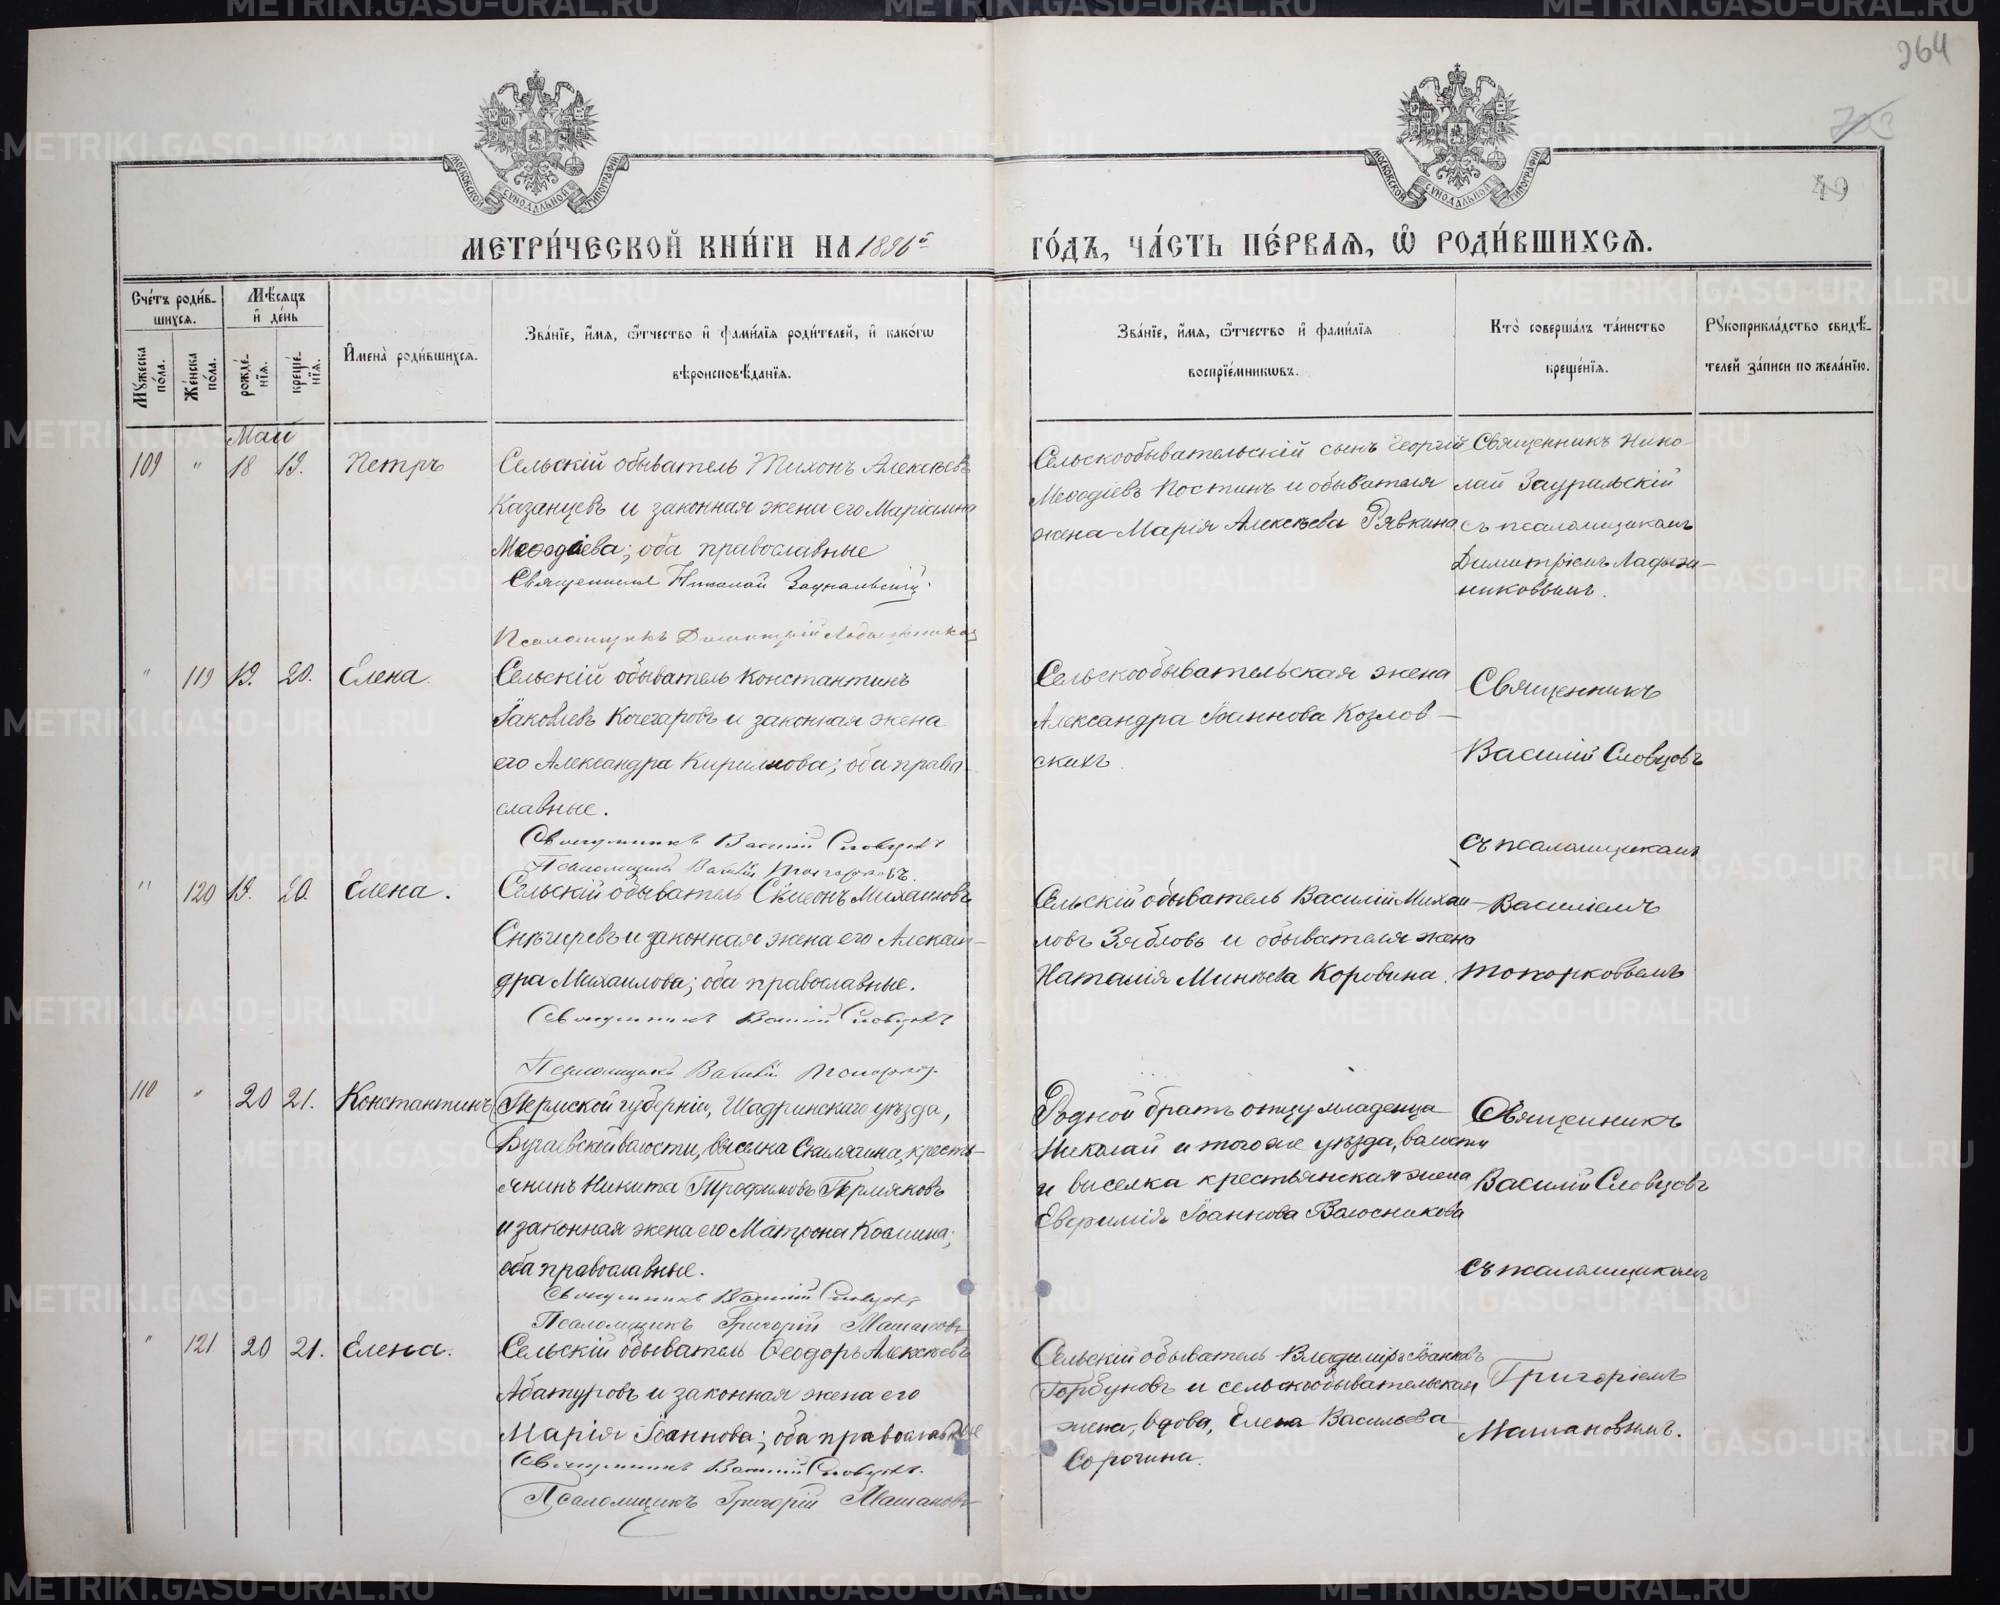 264
49
МОСКОВСКОЙ СѴНОДАЛЬНОЙ ТИПОГРАФІИ
МОСКОВСКОЙ СѴНОДАЛЬНОЙ ТИПОГРАФІИ
МЕТРИ́ЧЕСКОЙ КНИ́ГИ НА 1896й
ГО́ДЪ, ЧА́СТЬ ПЕ́РВАЯ, Ѽ РОДИ́ВШИХСЯ.
Сче́тъ роди́в-
шихся.
Мѣ́сяцъ
и҆ де́нь
Мꙋжеска по́ла.
Же́нска по́ла.
рожде́нїя.
креще́нїя.
И҆мена̀ роди́вшихся.
Зва́нїе, и҆́мя, ѻ҆́тчество и҆ фами́лїя роди́телей, и҆ како́гѡ
вѣроисповѣ́данїя.
Зва́нїе, и҆́мя, ѻ҆́тчество и҆ фами́лїя
воспрїе́мникѡвъ.
Кто̀ соверша́лъ та́инство
креще́нїя.
Рꙋкоприкла́дство свидѣ́-
телей за́писи по жела́нїю.
Май
109 " 18 19. Петръ
Сельскій обыватель Тихонъ Алексѣевъ
Казанцевъ и законная жена его Маріамна
Меѳодіева; оба православные
Священникъ Николай Зауральскій.
Псаломщикъ Димитрій Ладыжниковъ
Сельскообывательскій сынъ Георгій
Меѳодіевъ Постинъ и обывателя
жена Марія Алексѣева Рявкина
Священникъ Нико-
лай Зауральскій
съ псаломщикомъ
Димитріемъ Ладыж-
никовымъ.
" 119 19. 20. Елена.
Сельскій обыватель Константинъ
Іаковлевъ Кочегаровъ и законная жена
его Александра Кирилова; оба право-
славные.
Священникъ Василій Словцовъ
Псаломщикъ Василій Топорковъ.
Сельскообывательская жена
Александра Іоаннова Козлов-
скихъ
Священникъ
Василій Словцовъ
съ псаломщикомъ
" 120 19. 20. Елена.
Сельскій обыватель Сѵмеонъ Михаиловъ
Снѣгиревъ и законная жена его Алексан-
дра Михаилова; оба православные.
Священникъ Василій Словцовъ
Псаломщикъ Василій Топорковъ.
Сельскій обыватель Василій Михаи-
ловъ Зябловъ и обывателя жена
Наталія Минѣева Коровина.
Василіемъ
Топорковымъ
110 " 20 21. Константинъ
Пермской губерніи, Шадринскаго уѣзда,
Бугаевской волости, выселка Скилягина, кресть-
янинъ Никита Трофимовъ Пермяковъ
и законная жена его Матрона Космина;
оба православные.
Священникъ Василій Словцовъ
Псаломщикъ Григорій Машановъ
Родной братъ отцу младенца
Николай и того же уѣзда, волости
и выселка крестьянская жена
Евфимія Іоаннова Волосникова
Священникъ
Василій Словцовъ
съ псаломщикомъ
" 121 20 21. Елена.
Сельскій обыватель Ѳеодоръ Алексѣевъ
Абатуровъ и законная жена его
Марія Іоаннова; оба православные
Священникъ Василій Словцовъ.
Псаломщикъ Григорій Машановъ
Сельскій обыватель Владиміръ Іоанновъ
Горбуновъ и сельскообывательская
жена, вдова, Елена Васильева
Сорочина.
Григоріемъ
Машановымъ.
METRIKI.GASO-URAL.RU